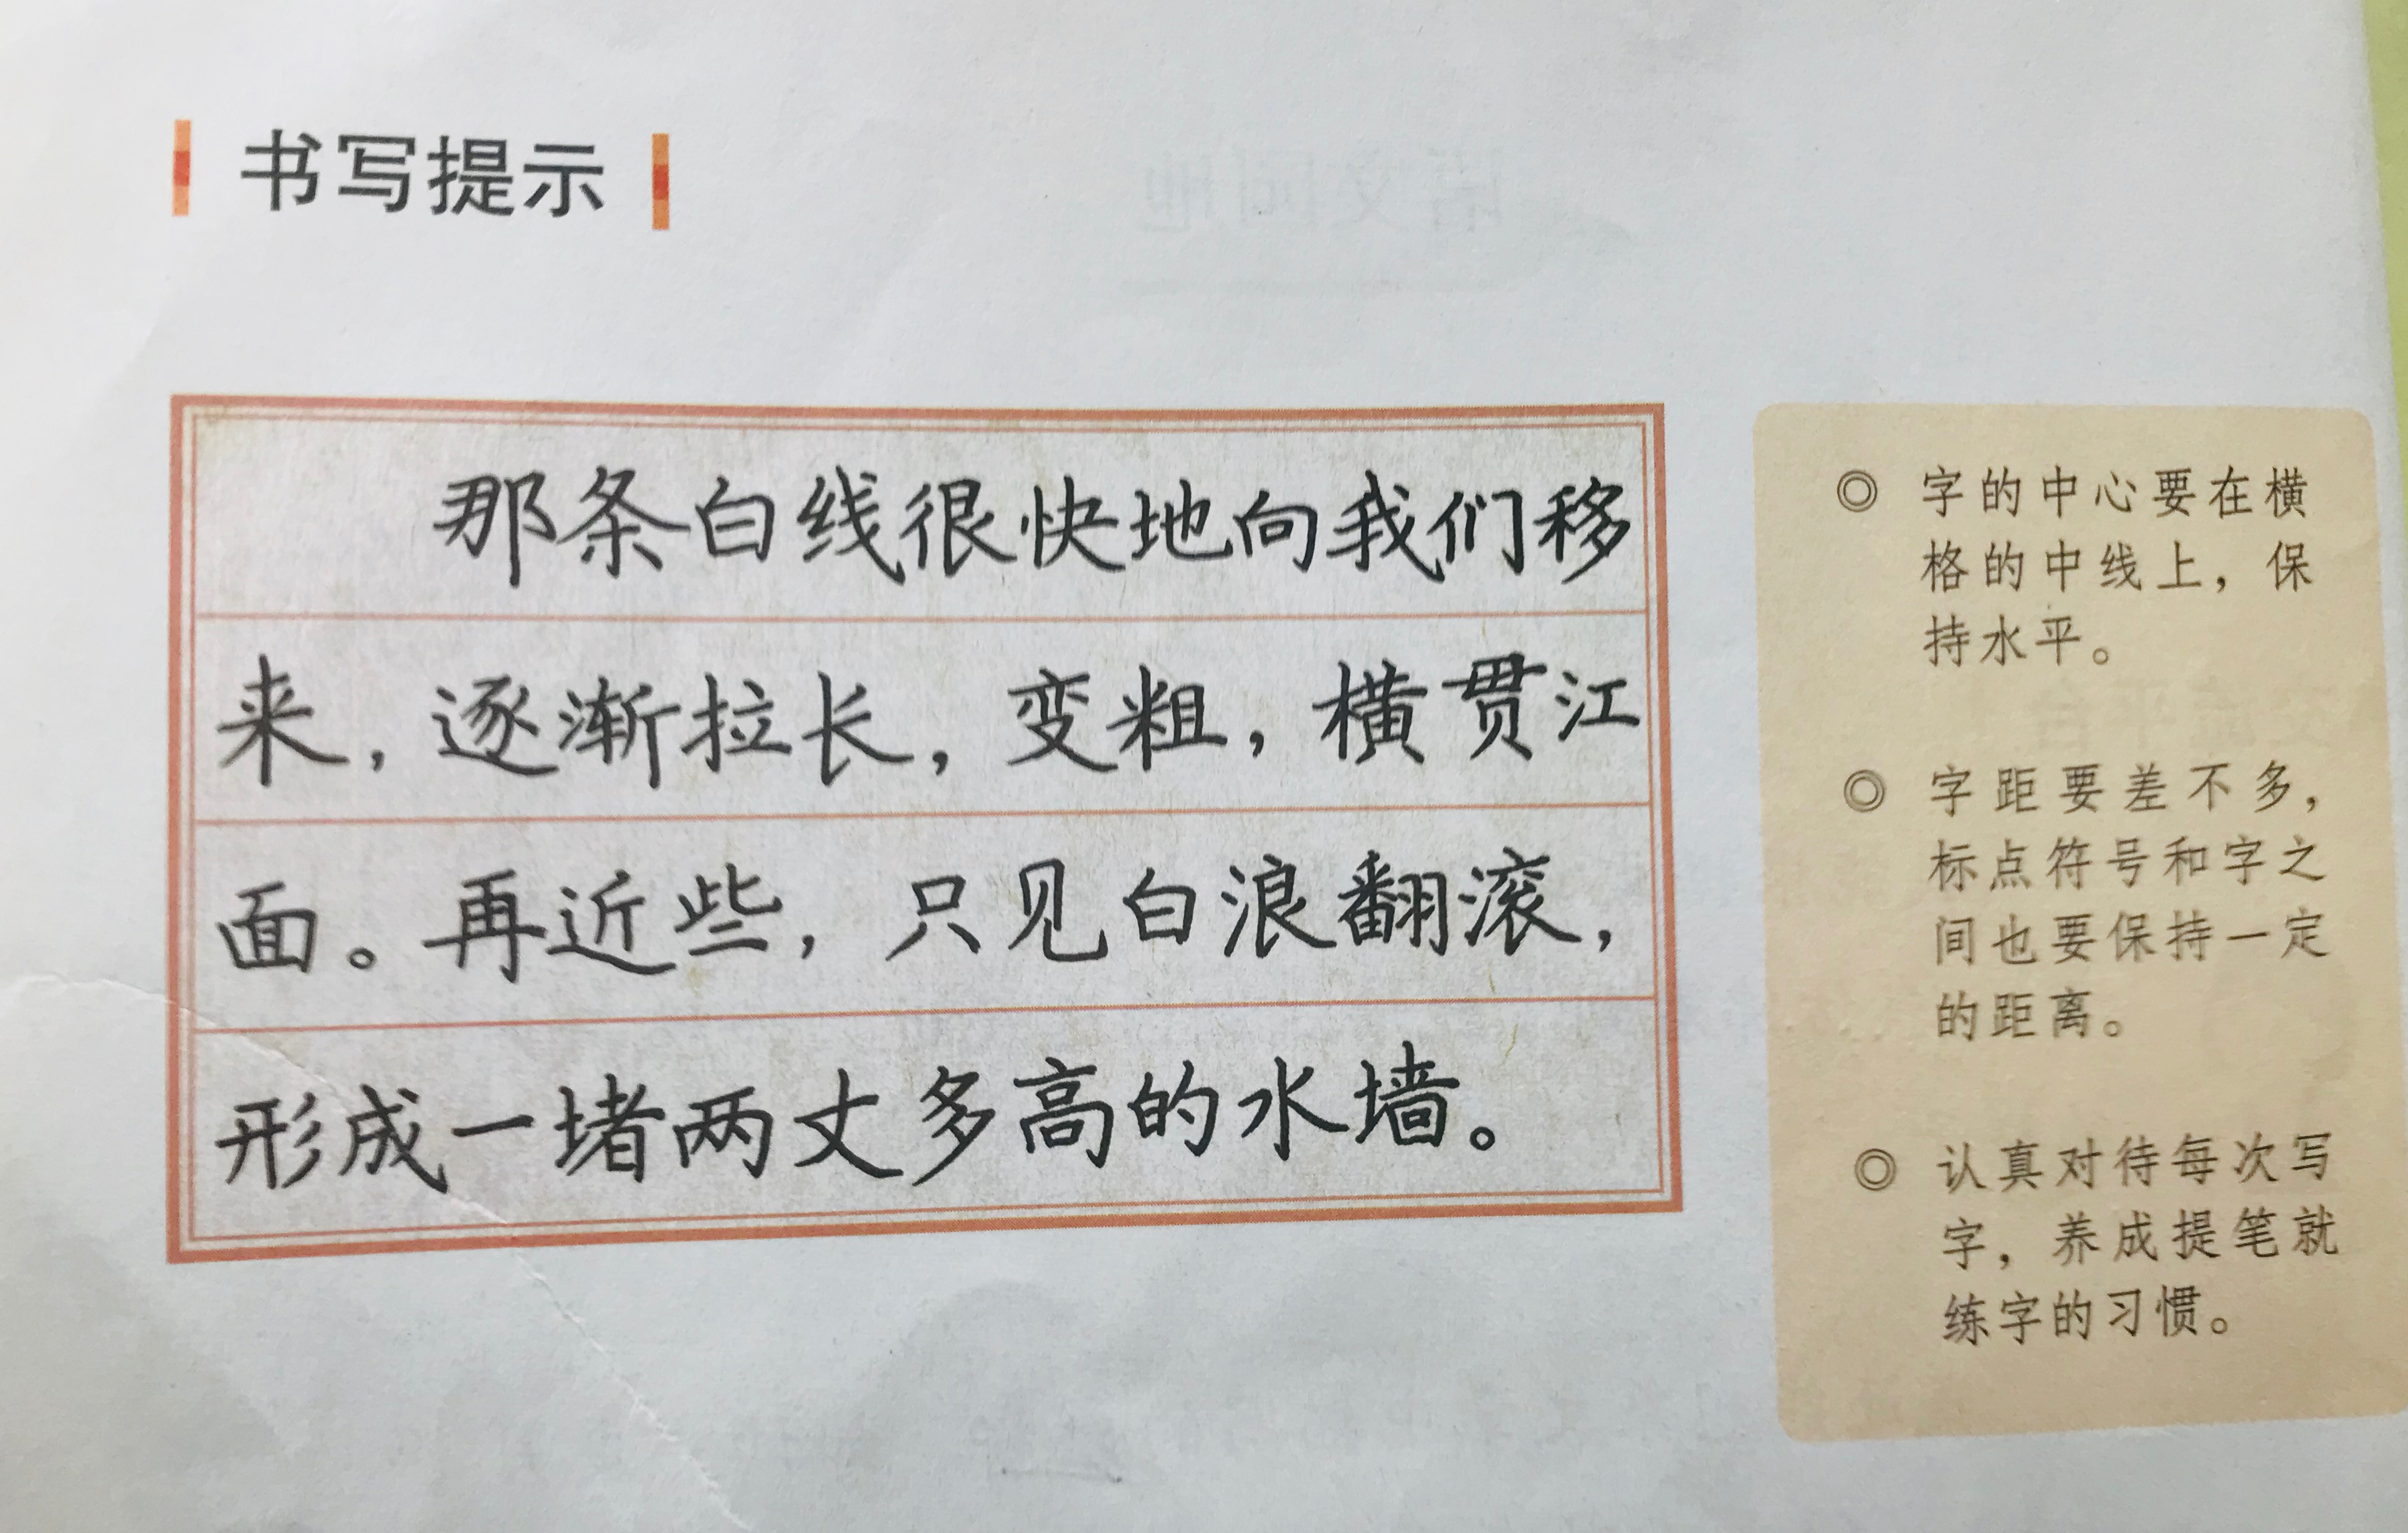 书写提示
那条白线很快地向我们移
来，逐渐拉长，变粗，横贯江
面。再近些，只见白浪翻滚，
形成一堵两丈多高的水墙。
◎ 字的中心要在横
格的中线上，保
持水平。
◎ 字距要差不多，
标点符号和字之
间也要保持一定
的距离。
◎ 认真对待每次写
字，养成提笔就
练字的习惯。